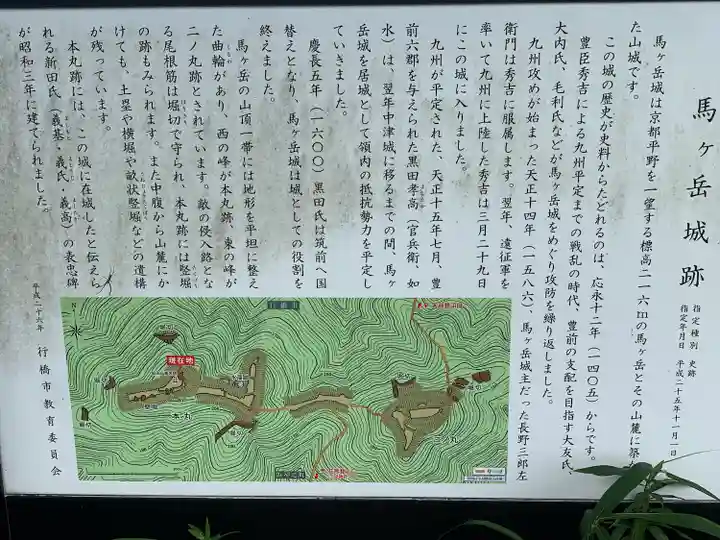 馬ヶ岳城跡
指定種別 史跡
指定年月日 平成二十五年十一月一日
馬ヶ岳城は京都平野を一望する標高二一六mの馬ヶ岳とその山麓に築
た山城です。
この城の歴史が史料からたどれるのは、応永十二年(一四〇五)からです。
豊臣秀吉による九州平定までの戦乱の時代、豊前の支配を目指す大友氏、
大内氏、毛利氏などが馬ヶ岳城をめぐり攻防を繰り返しました。
九州攻めが始まった天正十四年(一五八六)、馬ヶ岳城主だった長野三郎左
衛門は秀吉に服属します。翌年、遠征軍を
率いて九州に上陸した秀吉は三月二十九日
にこの城に入りました。
九州が平定された、天正十五年七月、豊
前六郡を与えられた黒田孝高(官兵衛、如
水)は、翌年中津城に移るまでの間、馬ヶ
岳城を居城として領内の抵抗勢力を平定し
ていきました。
慶長五年(一六〇〇)黒田氏は筑前へ国
替えとなり、馬ヶ岳城は城としての役割を
終えました。
馬ヶ岳の山頂一帯には地形を平坦に整え
た曲輪があり、西の峰が本丸跡、東の峰が
二ノ丸跡とされています。敵の侵入路とな
る尾根筋は堀切で守られ、本丸跡には竪堀
の跡もみられます。また中腹から山麓にか
けても、土塁や横堀や畝状竪堀などの遺構
が残っています。
本丸跡には、この城に在城したと伝えら
れる新田氏(義基・義氏・義高)の表忠碑
が昭和三年に建てられました。
平成二十六年 行橋市教育委員会
現在地
堀切
堀切
竪堀
本丸
堀切
堀切
二ノ丸
堀切
堀切
N